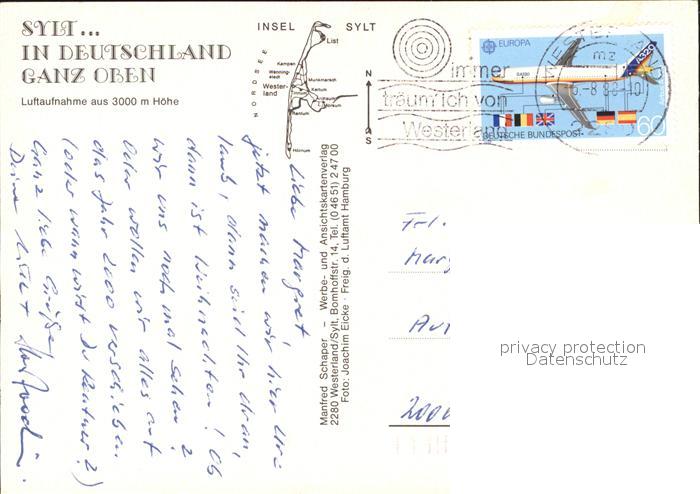 SYLT...
IN DEUTSCHLAND
GANZ OBEN
Luftaufnahme aus 3000 m Höhe
INSEL SYLT
List
NORDSEE
Kampen
Wenning-
stedt
Munkmarsch
Wester-
land
Keitum
Morsum
Rantum
Hörnum
N
S
immer
träum' ich von
Westerland
EUROPA
A320
DEUTSCHE BUNDESPOST
60
Manfred Schaper – Werbe- und Ansichtskartenverlag
2280 Westerland/Sylt, Bomhoffstr. 14, Tel. (0 46 51) 2 47 00
Foto: Joachim Eicke · Freig. d. Luftamt Hamburg
Liebe Margret
jetzt machen wir hier Ur-
laub, dann seid Ihr dran,
dann ist Weihnachten! Ob
wir uns noch mal sehen?
Oder wollen wir alles auf
das Jahr 2000 verschieben
(oder wann wirst Du Rentner?)
Ganz liebe Grüße
Deine
Frl.
Marg
200
privacy protection
Datenschutz